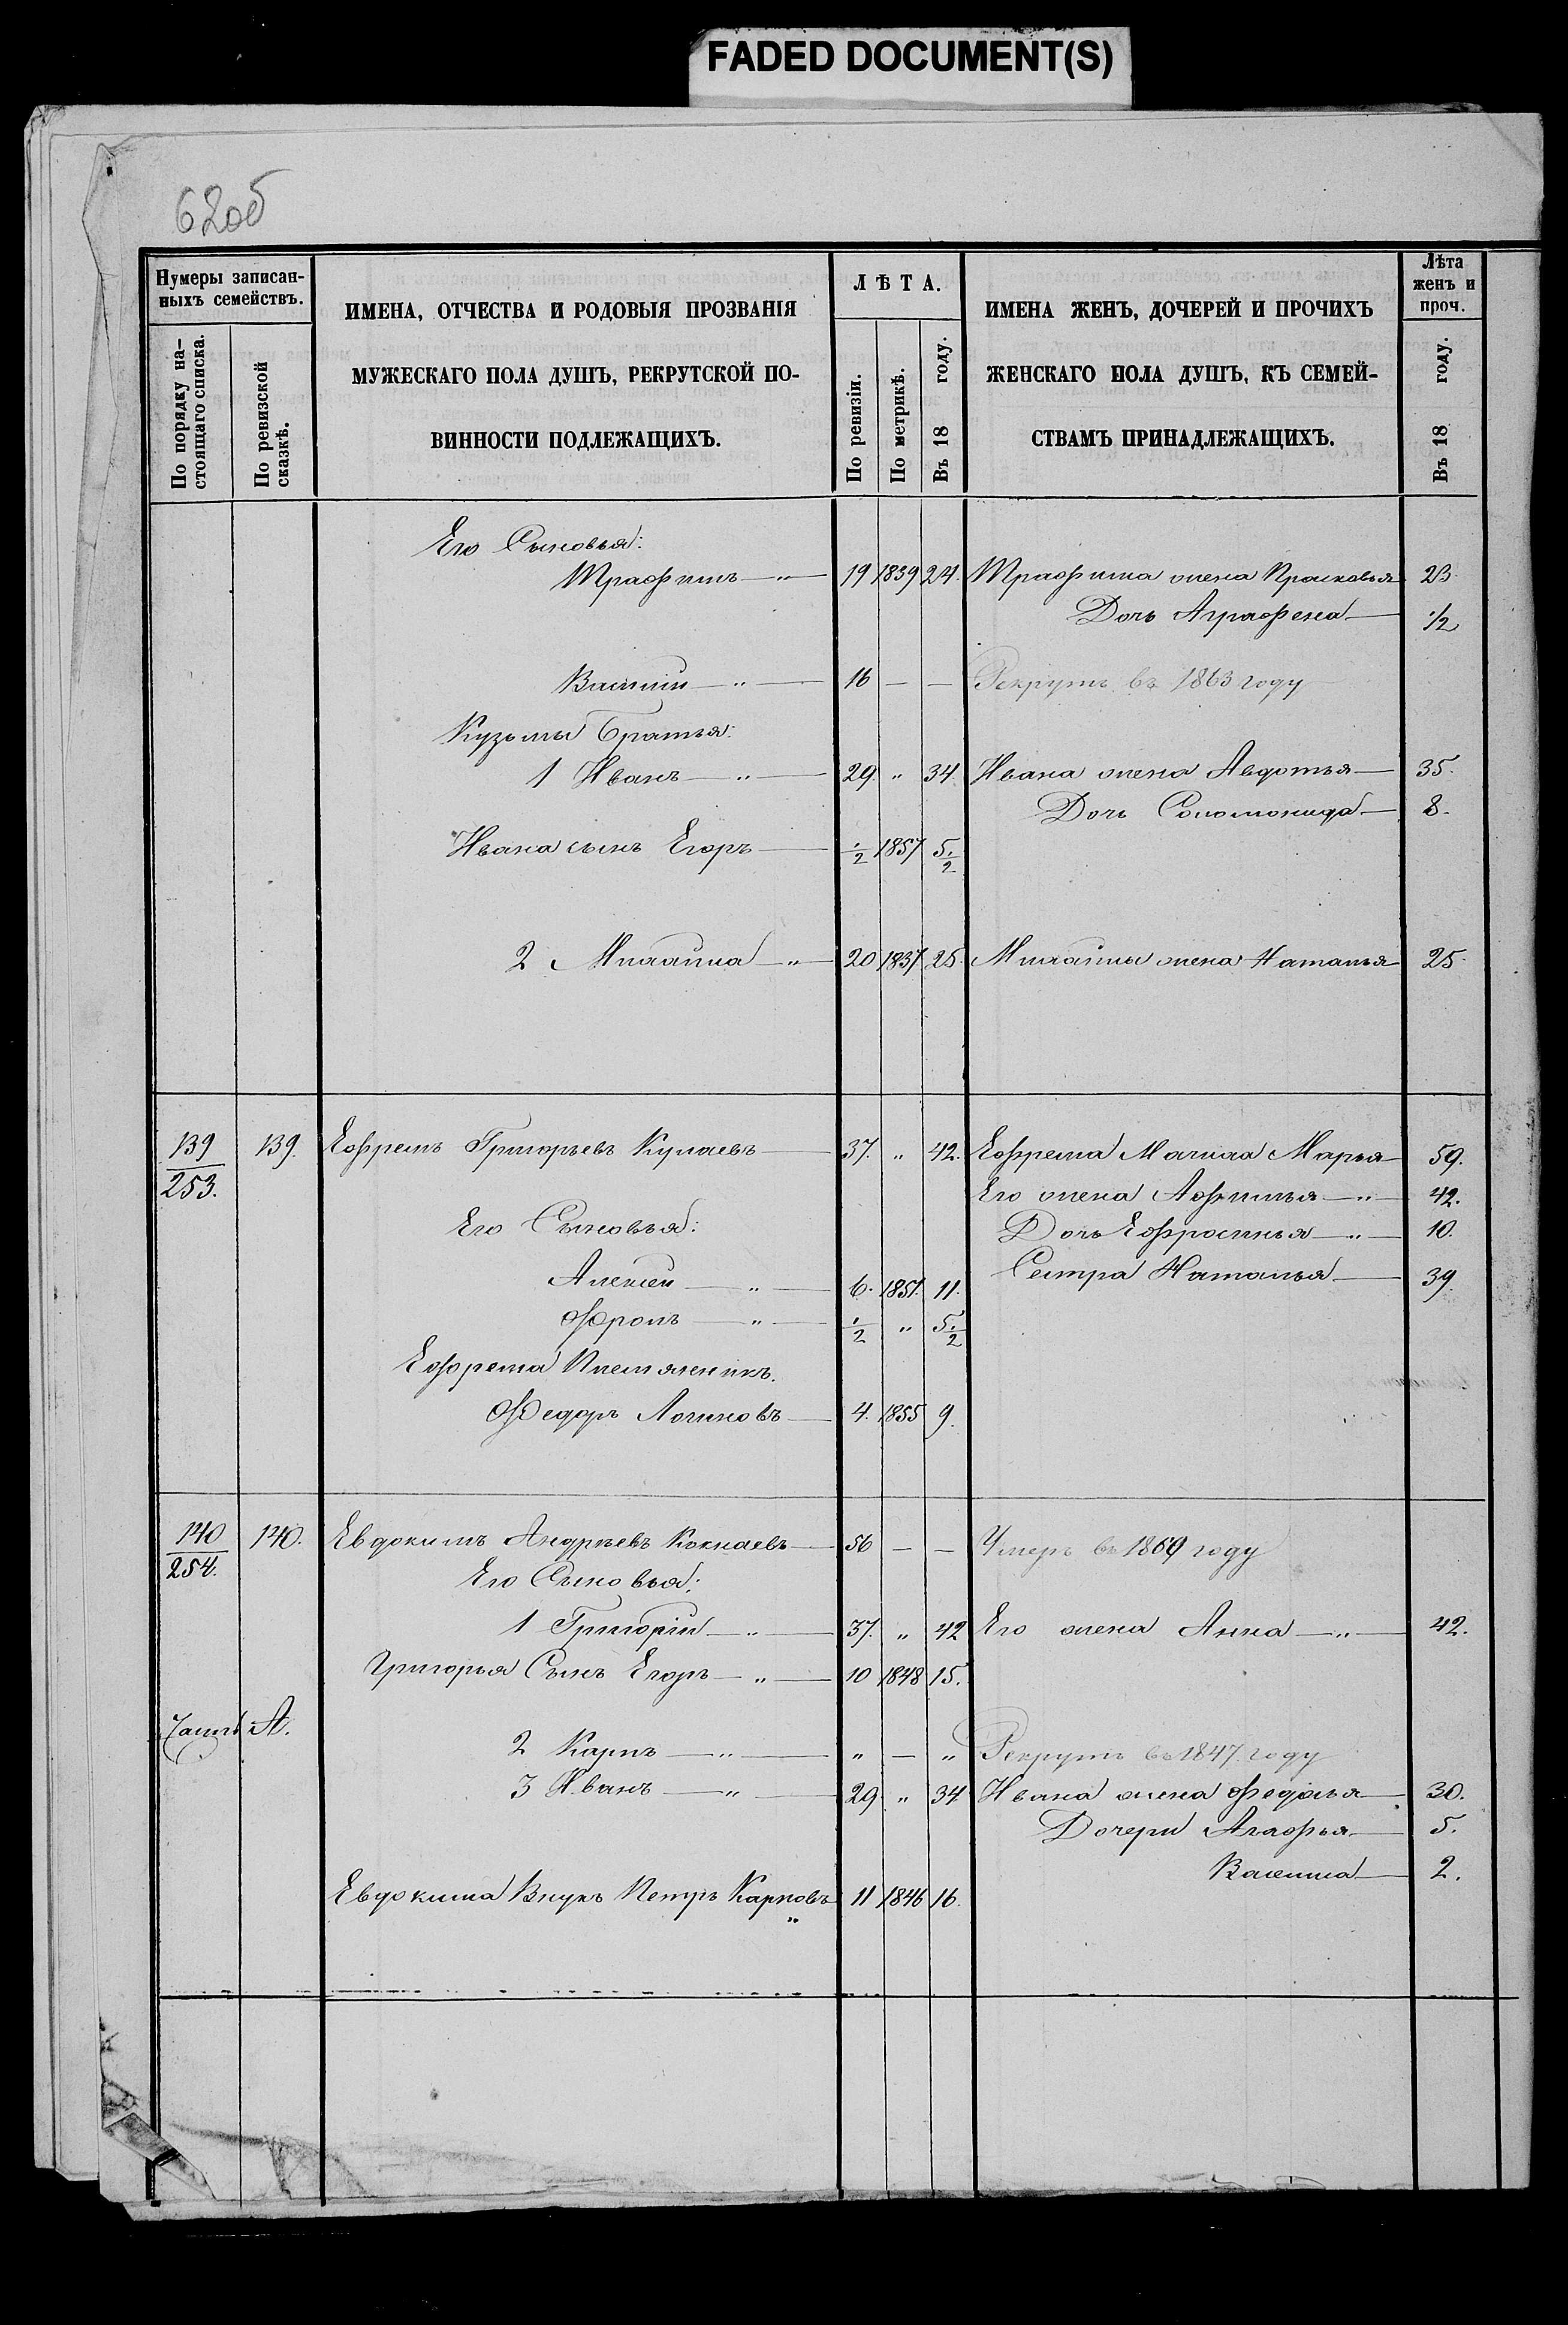 FADED DOCUMENT(S)
62об
Нумеры записан-
ныхъ семействъ.
По порядку на-
стоящаго списка.
По ревизской
сказкѣ.
ИМЕНА, ОТЧЕСТВА И РОДОВЫЯ ПРОЗВАНІЯ
МУЖЕСКАГО ПОЛА ДУШЪ, РЕКРУТСКОЙ ПО-
ВИННОСТИ ПОДЛЕЖАЩИХЪ.
ЛѢТА.
По ревизіи.
По метрикѣ.
Въ 18 году.
ИМЕНА ЖЕНЪ, ДОЧЕРЕЙ И ПРОЧИХЪ
ЖЕНСКАГО ПОЛА ДУШЪ, КЪ СЕМЕЙ-
СТВАМЪ ПРИНАДЛЕЖАЩИХЪ.
Лѣта
женъ и
проч.
Въ 18 году.
Его Сыновья:
Трафимъ — „ — 19 1839 24. Трафима жена Прасковья 23.
Дочь Аграфена — 1/2
Василій — „ — 16 — — Рекрутъ въ 1863 году
Кузьмы Братья:
1 Иванъ — „ — 29. „ 34. Ивана жена Авдотья — 35.
Дочь Соломонида — 8.
Ивана сынъ Егоръ — 1/2 1857 5 1/2
2 — „ — 20 1837 25. жена Наталья 25.
139/253. 139. Ефремъ Григорьевъ — 37. „ 42. Ефрема Марья 59.
Его жена Афимья — „ — 42.
Его Сыновья: Дочь Ефросинья — „ — 10.
Алексей — „ — 6. 1851. 11. Сестра Наталья — 39.
Фролъ — „ — 1/2 „ 5 1/2
Ефрема Племянникъ.
Федоръ Логиновъ — 4. 1855 9.
140/254. 140. Евдокимъ Андреевъ — 56 — — Умеръ въ 1859 году
Его Сыновья:
1 Григорій — „ — 37. „ 42 Его жена Анна — „ — 42.
Григорья Сынъ Егоръ — „ — 10 1848 15.
А.
2 Карпъ — „ — „ — „ Рекрутъ въ 1847 году
3 Иванъ — „ — 29 „ 34. Ивана жена Федосья — 30.
Дочери Агафья — 5.
Василиса — 2.
Евдокима Внукъ Петръ Карповъ 11 1846 16.
„